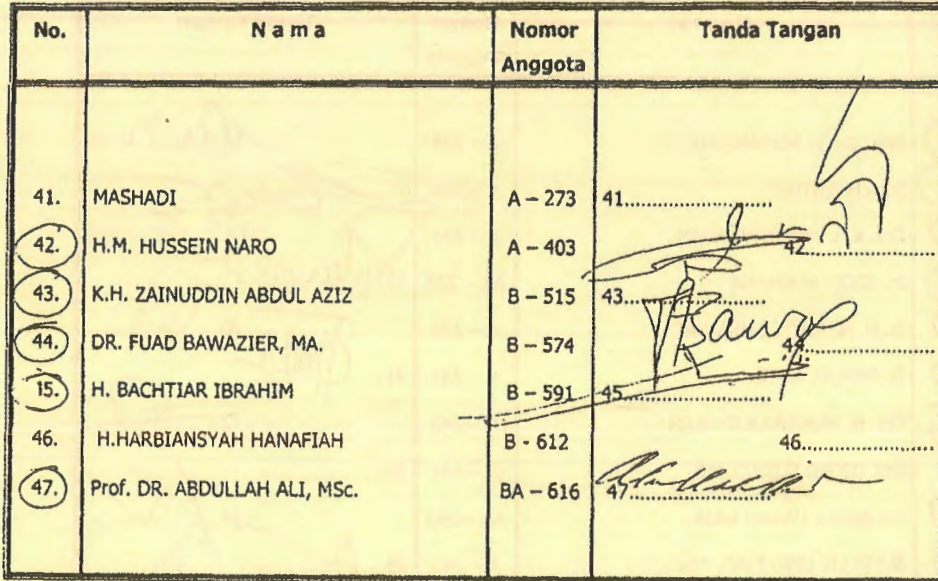 No. N a m a Nomor Anggota Tanda Tangan
41. MASHADI A – 273 41
42. H.M. HUSSEIN NARO A – 403 42
43. K.H. ZAINUDDIN ABDUL AZIZ B – 515 43
44. DR. FUAD BAWAZIER, MA. B – 574 44
15. H. BACHTIAR IBRAHIM B – 591 45
46. H.HARBIANSYAH HANAFIAH B - 612 46
47. Prof. DR. ABDULLAH ALI, MSc. BA – 616 47